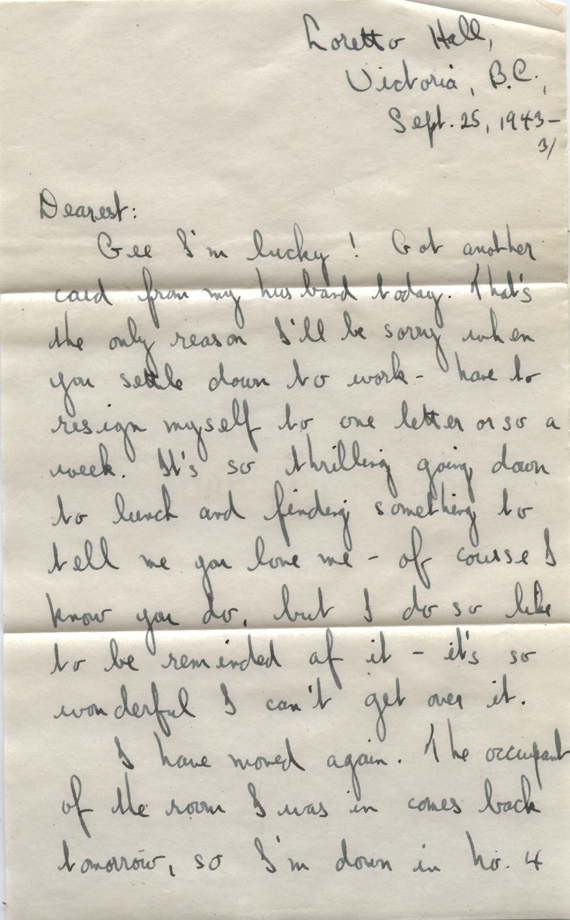 Loretto Hall,
Victoria, B.C.,
Sept. 25, 1943-
3/
Dearest:
Gee I'm lucky! Got another
card from my husband today. That's
the only reason I'll be sorry when
you settle down to work - have to
resign myself to one letter or so a
week. It's so thrilling going down
to lunch and finding something to
tell me you love me - of course I
know you do, but I do so like
to be reminded of it - it's so
wonderful I can't get over it.
I have moved again. The occupant
of the room I was in comes back
tomorrow, so I'm down in no. 4